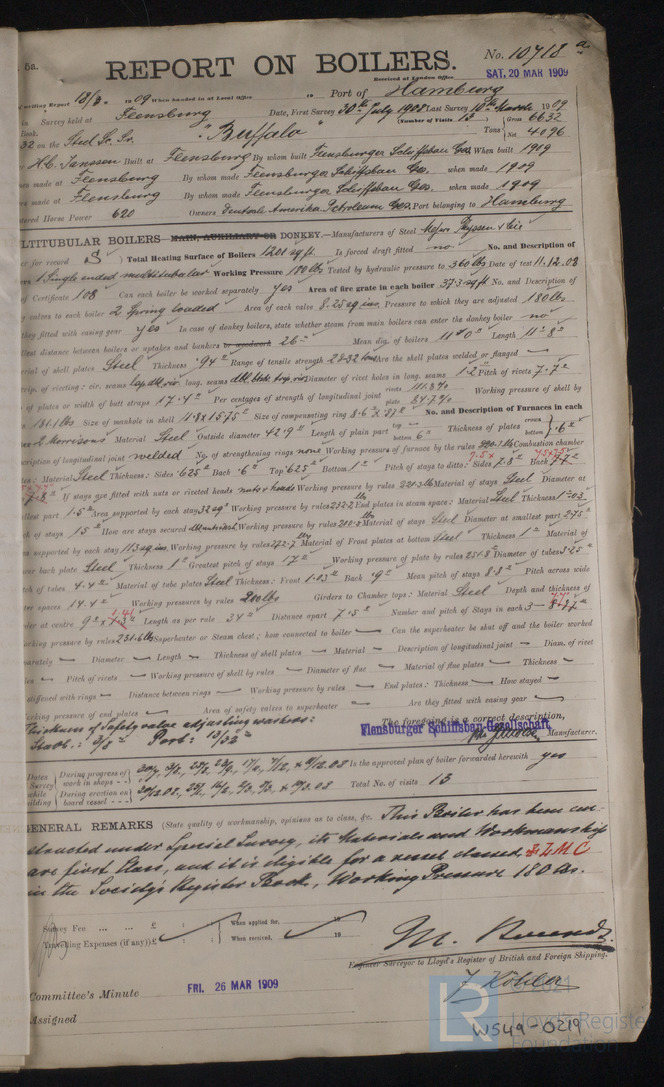 6a.
REPORT ON BOILERS.
No. 10718 a
Received at London Office
SAT. 20 MAR 1909
writing Report 18/3. 1909 When handed in at Local Office 19 Port of Hamburg
in Survey held at Flensburg Date, First Survey 30th July 1908 Last Survey 10th March 1909
Book.
(Number of Visits 13)
32 on the Steel Sc. Sr. "Buffalo" Tons Gross 6632
Net 4096
H.C. Janssen Built at Flensburg By whom built Flensburger Schiffsbau Ges. When built 1909
made at Flensburg By whom made Flensburger Schiffsbau Ges. when made 1909
made at Flensburg By whom made Flensburger Schiffsbau Ges. when made 1909
Horse Power 620 Owners Deutsch Amerika Petroleum Ges. Port belonging to Hamburg
MULTITUBULAR BOILERS—MAIN, AUXILIARY OR DONKEY.—Manufacturers of Steel Messrs Thyssen & Cie
for record S) Total Heating Surface of Boilers 1201 sq ft Is forced draft fitted no No. and Description of
1 Single ended multitubular Working Pressure 180 lbs Tested by hydraulic pressure to 360 lbs Date of test 11.12.08
of Certificate 108 Can each boiler be worked separately yes Area of fire grate in each boiler 37.3 sq ft No. and Description of
valves to each boiler 2 Spring loaded Area of each valve 8.25 sq ins. Pressure to which they are adjusted 180 lbs
they fitted with easing gear yes In case of donkey boilers, state whether steam from main boilers can enter the donkey boiler no
distance between boilers or uptakes and bunkers or woodwork 26" Mean dia. of boilers 11'0" Length 11'8"
of shell plates Steel Thickness .94" Range of tensile strength 28-32 tons Are the shell plates welded or flanged —
of riveting: cir. seams lap dbl. riv. long. seams dbl. butt trip. riv. Diameter of rivet holes in long. seams 1.2" Pitch of rivets 7.7"
of plates or width of butt straps 17.4" Per centages of strength of longitudinal joint rivets 111.3% plate 84.7% Working pressure of shell by
181.1 lbs Size of manhole in shell 11.8 x 15.75" Size of compensating ring 8.6" x .87" No. and Description of Furnaces in each
2 Morrisons Material Steel Outside diameter 42.9" Length of plain part top bottom 6" Thickness of plates crown bottom .6"
of longitudinal joint welded No. of strengthening rings none Working pressure of furnace by the rules Combustion chamber
Material Steel Thickness: Sides .625 Back .6" Top .625 Bottom 1" Pitch of stays to ditto: Sides 7.5 x 7.8" Back
If stays are fitted with nuts or riveted heads nuts & heads Working pressure by rules Material of stays Steel Diameter at
smallest part 1.5" Area supported by each stay Working pressure by rules End plates in steam space: Material Steel Thickness 1.03
of stays 15" How are stays secured Working pressure by rules Material of stays Steel Diameter at smallest part 2.75"
supported by each stay 113 sq. ins. Working pressure by rules 272.7 lbs Material of Front plates at bottom Steel Thickness 1" Material of
back plate Steel Thickness 1" Greatest pitch of stays 17" Working pressure of plate by rules 254.8 Diameter of tubes 3.25"
of tubes 4.4" Material of tube plates Steel Thickness: Front 1.03" Back .9" Mean pitch of stays 8.8" Pitch across wide
water spaces 14.4" Working pressures by rules 200 lbs Girders to Chamber tops: Material Steel Depth and thickness of
at centre Length as per rule 34" Distance apart 7.5" Number and pitch of Stays in each 3
Working pressure by rules 231.6 lbs Superheater or Steam chest; how connected to boiler — Can the superheater be shut off and the boiler worked
separately — Diameter — Length — Thickness of shell plates — Material — Description of longitudinal joint — Diam. of rivet
— Pitch of rivets — Working pressure of shell by rules — Diameter of flue — Material of flue plates — Thickness —
stiffened with rings — Distance between rings — Working pressure by rules — End plates: Thickness — How stayed —
Working pressure of end plates — Area of safety valves to superheater — Are they fitted with easing gear —
Thickness of Safety valve adjusting washers:
Starb.: 5/8" Port: 13/32"
The foregoing is a correct description,
Flensburger Schiffsbau Gesellschaft
Manufacturer.
Dates of Survey while building
During progress of work in shops - -
During erection on board vessel - - -
Is the approved plan of boiler forwarded herewith yes
Total No. of visits 13
GENERAL REMARKS (State quality of workmanship, opinions as to class, &c. This Boiler has been con-
structed under Special Survey, its Materials and Workmanship
are first Class, and it is eligible for a vessel classed LMC
in the Society's Register Book, Working Pressure 180 lbs.
Survey Fee ... ... £ : : When applied for, 19
Travelling Expenses (if any) £ : : When received, 19
Engineer Surveyor to Lloyd's Register of British and Foreign Shipping.
J. Köhler
Committee's Minute FRI. 26 MAR 1909
Assigned
LR
Lloyd's Register
Foundation
W549-0219